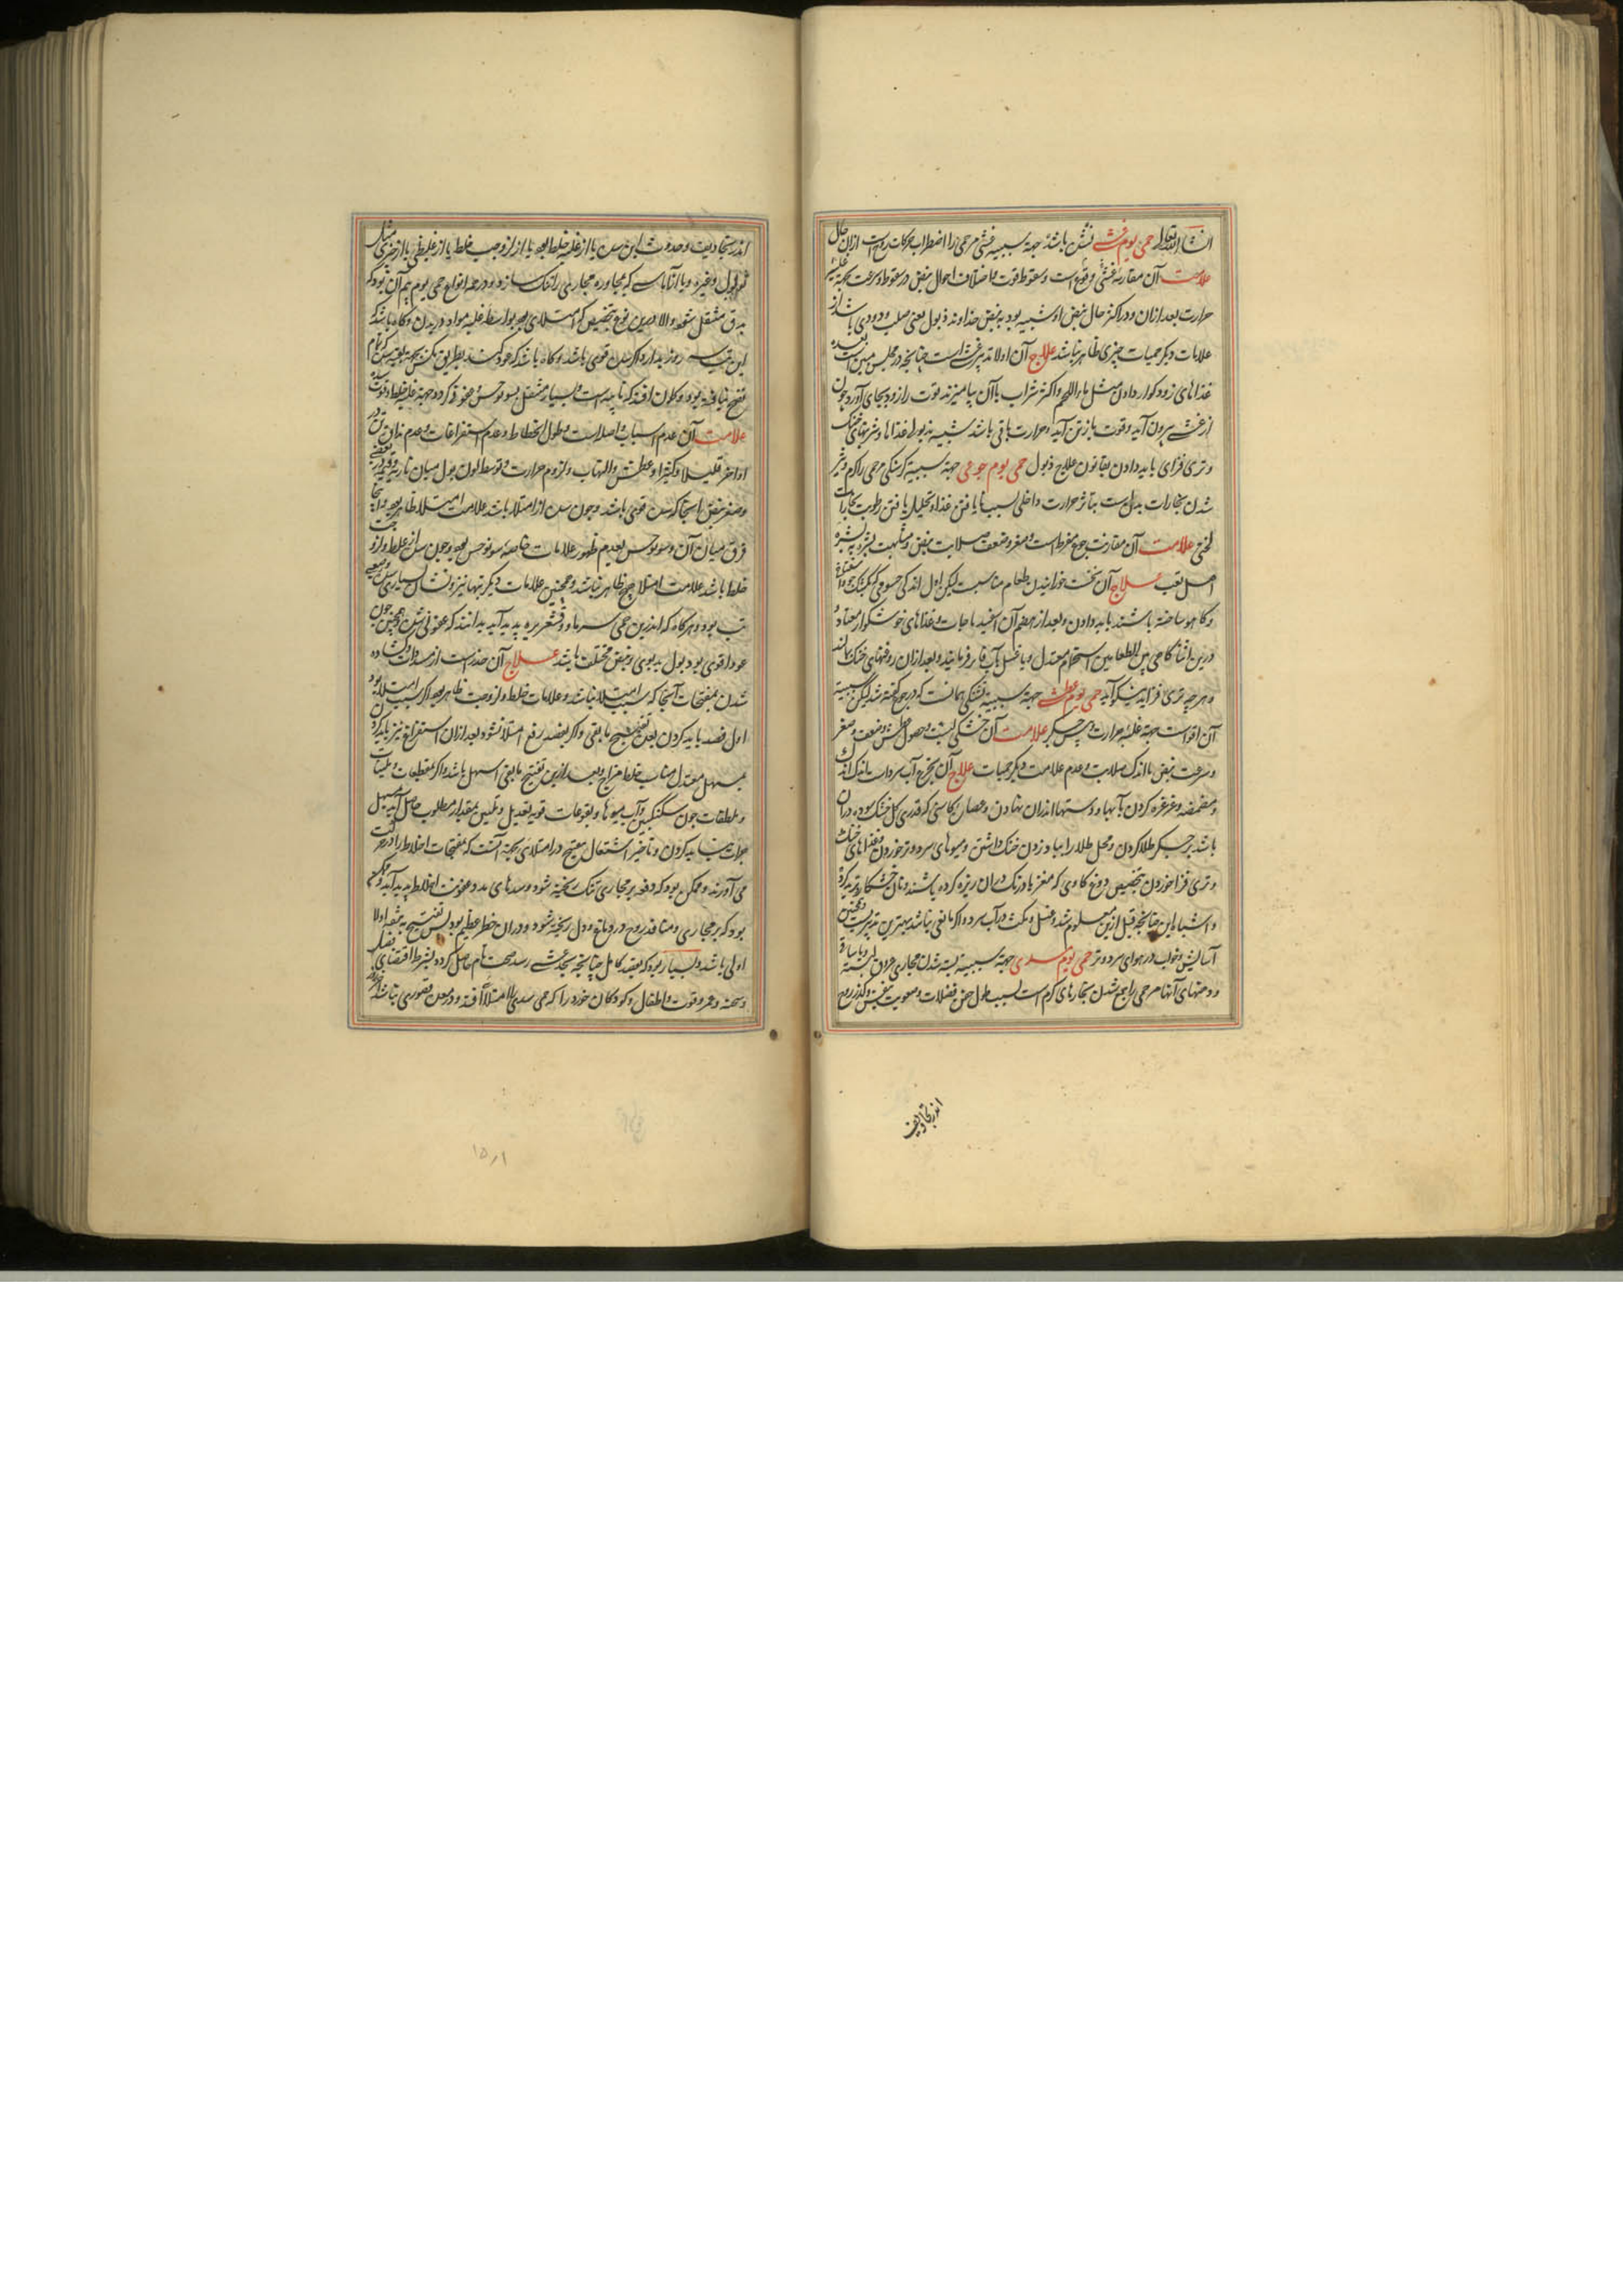 انشاء الله تعالی حمی یوم غشی باشد جهة سببیه غشی مر حمی را اضطراب حرکات روح است از آن حال
علامت آن مقارنه غشی و قوع است و سقوط قوت با اختلاف احوال نبض در سقوط و سرعت بجهة غلبه
حرارت بعد ازان و در اکثر حال نبض او شبیه بود به نبض خداوند ذبول یعنی صلب و دودی باشد از
علامات دیگر حمیات چیزی ظاهر نباشد علاج آن اولا تدبیر غشی است چنانچه در محلش مبین است بعده
غذاهای زود کوار دادن مثل ماء اللحم و اکر شراب با آن بیامیزند قوت را زود بجای آورد و چون
از غشی بیرون آید و قوت باز تن آید و حرارت باقی باشد شبیه بذبولی غذاها و شربتهای خنک
و تری فزای باید دادن بقانون علاج ذبول حمی یوم جوعی جهة سببیه کرسنکی مر حمی را کرم و تیز
شدن بخارات بدن است بتاثیر حرارت داخلی بسبب نایافتن غذا و تحلیل یافتن رطوبت بخارات
لختی علامت آن مقارنت جوع مفرط است و صغر و ضعف و صلابت نبض و مشابهت بشره به بشره
اصل تعب علاج آن نخست خورانیدن طعام مناسبست لیکن اول اندکی حسوی که کشک جو و اسفناخ
و کاهو ساخته باشند باید دادن و بعد از هضم آن اسفیدباجات و غذاهای خوشکوار معتاد و
درین اثنا کاهی بین الطعامین استحمام معتدل و یا غسل بآب فاتر فرمایند و بعد از ان روغنهای خنک مالند
و هر چه تری فزاید نیکو آید حمی یوم عطشی جهة سببیه تشنکی همانست که در جوع کفته شد لیکن سببیة
آن اقواست جهة غلبه حرارت بر جکر علامت آن خشکی لبست و حصول عطش و ضعف و صغر
و سرعت نبض با اندک صلابت و عدم علامت دیکر حمیات علاج آن تجرع آب سرد است باندک اندک
و مضمضه و غرغره کردن بآنها و دستها اندران نهادن و عصاره کاسنی که قدری کل خنک سوده در آن
باشد بر جکر طلا کردن و محل طلا را بباد زدن خنک داشتن و میوهای سرد و تر خوردن و غذاهای خنک
و تری فزا خوردن بتخصیص دوغ کاوی که مغز بادرنک در ان ریزه کرده باشند و نان خشکار ترید کرده
و اشباه این چنانچه قبل ازین معلوم شد و غسل و مکث در آب سرد و اکر مانعی نباشد بهترین تدبیرست و همچنین
آسایش و خواب در هوای سرد و تر حمی یوم سدی جهة سببیة بسته شدن مجاری عروق لیف و یا مسام
و دهنهای آنها مر حمی را جمع شدن بخارهای کرم است بسبب طول حقن فضلات و صعوبت تنفس و کذر روح
اندر تجاویف
اندر تجاویف و حدوث این سدن یا از غلبه خلط بود یا از لزوجت خلط یا از غلیظی یا از چیزی مثل
ثولول و غیره و یا از آماسی که بمجاوره مجاری را تنک سازد و در همه انواع حمی یوم بیم آن بود که
بدق منتقل شود الا درین نوع بتخصیص که امتلای بود بواسطه غلبه مواد در بدن و کاه باشد که
این تب سه روز بدارد اکر سدن قوی باشد و کاه باشد که عود کند بطریق نکس بجهة بقیه سدن که تمام
نضج نیافته بود و کمان افتد که نایبه است و بسیار منتقل بسونوخس و محرقه کردد جهة غلبه خلط و قوت سده
علامت آن عدم اسباب و اصلاست و طول انحطاط و عدم استفراغات و عدم نداوت تن در
اواخر قلیلا و کثیرا و عطش و التهاب و لزوم حرارت و توسط لون بول میان ناریه و غیره
و صغر نبض آنجا که سدن قوی باشد و چون سدن از امتلا باشد علامت امتلا ظاهر بود و اینجا
فرق میان آن و سونوخس بعدم ظهور علامات خاصه سونوخس بود و چون سدن از غلظ و لزوجت
خلط باشد علامت امتلا هیچ ظاهر نباشد و همچنین علامات دیکر تبها نیز و نشان بسیاری سدن و صعبی
تب بود و هر کاه که اندرین حمی سرما و قشعریره پدید آید بدانند که عفونی شد و همچنین چون
عود اقوی بود و بول بدبوی و نبض مختلف باشد علاج آن حذر است از مسددات و کشاده
شدن بمفتحات آنجا که سبب امتلا نباشد و علامات خلط و لزوجت ظاهر بود و اکر سبب امتلا بود
اول فصد باید کردن بعده تفتیح مابقی و اکر بفصد رفع امتلا نشود بعد ازان استفراغ نیز باید کرد
بمسهل معتدل مناسب خلط و مزاج و بعد از این تفتیح مابقی اسهل باشد و اکر مقطعات و ملینات
و ملطفات چون سکنکبین و آب میوها و بقوعات قویه تعدیل و تلیین بمقدار مطلوب حاصل آید مسهل
جرات نباید کردن و تاخیر استعمال مفتح در امتلای بجهة آنست که مفتحات اخلاط را در حرکت
می آورند و ممکن بود که دفعة بر مجاری تنک ریخته شود و سدهای بد و عفونت اخلاط پدید آید و ممکن
بود که بر مجاری و منافذ روح در دماغ و دل ریخته شود و دران خطر عظیم بود پس تنقیه به تفتیح اولا
اولی باشد و بسیار بود که بفصد کامل چنانچه بحد غشی رسد صحت تام حاصل کرده بشرط اقتضای فصل
و سحنه و عمر و قوت و اطفال و کودکان خورد را که حمی سدی الامتلا افتد و در سن قصوری نباشد
۱۵۱